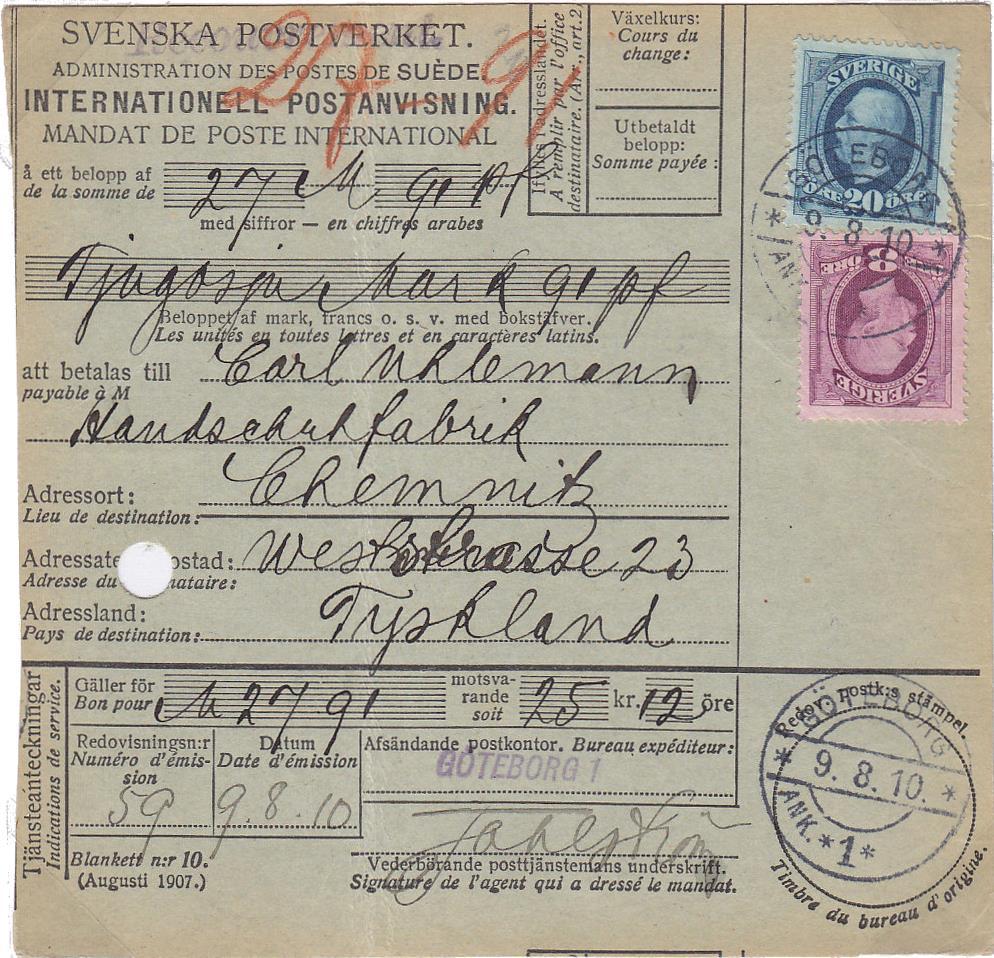 SVENSKA POSTVERKET.
ADMINISTRATION DES POSTES DE SUÈDE.
INTERNATIONELL POSTANVISNING.
MANDAT DE POSTE INTERNATIONAL
27-91
Ifylles i adresslandet.
A remplir par l'office
destinataire. (Arr., art. 2)
Växelkurs:
Cours du
change:
Utbetaldt
belopp:
Somme payée:
SVERIGE
ÖRE 20 ÖRE
8 ÖRE
SVERIGE
GÖTEBORG
9. 8. 10
ANK
å ett belopp af
de la somme de
27 M 91 pf
med siffror — en chiffres arabes
Tjugosju Mark 91 pf
Beloppet af mark, francs o. s. v. med bokstäfver.
Les unités en toutes lettres et en caractères latins.
att betalas till
payable à M
Carl Uhlemann
Handschuhfabrik
Adressort:
Lieu de destination:
Chemnitz
Adressate ostad:
Adresse du nataire:
Weststrasse 23
Adressland:
Pays de destination:
Tyskland
Tjänsteanteckningar
Indications de service.
Gäller för
Bon pour
M 27 91
motsva-
rande
soit
25 kr. 12 öre
Redovisningsn:r
Numéro d'émis-
sion
59
Datum
Date d'émission
9.8.10
Afsändande postkontor. Bureau expéditeur:
GÖTEBORG 1
Vederbörande posttjänstemans underskrift.
Signature de l'agent qui a dressé le mandat.
Blankett n:r 10.
(Augusti 1907.)
Redov. postk:s stämpel.
GÖTEBORG
* 9. 8. 10. *
ANK. *1*
Timbre du bureau d'origine.